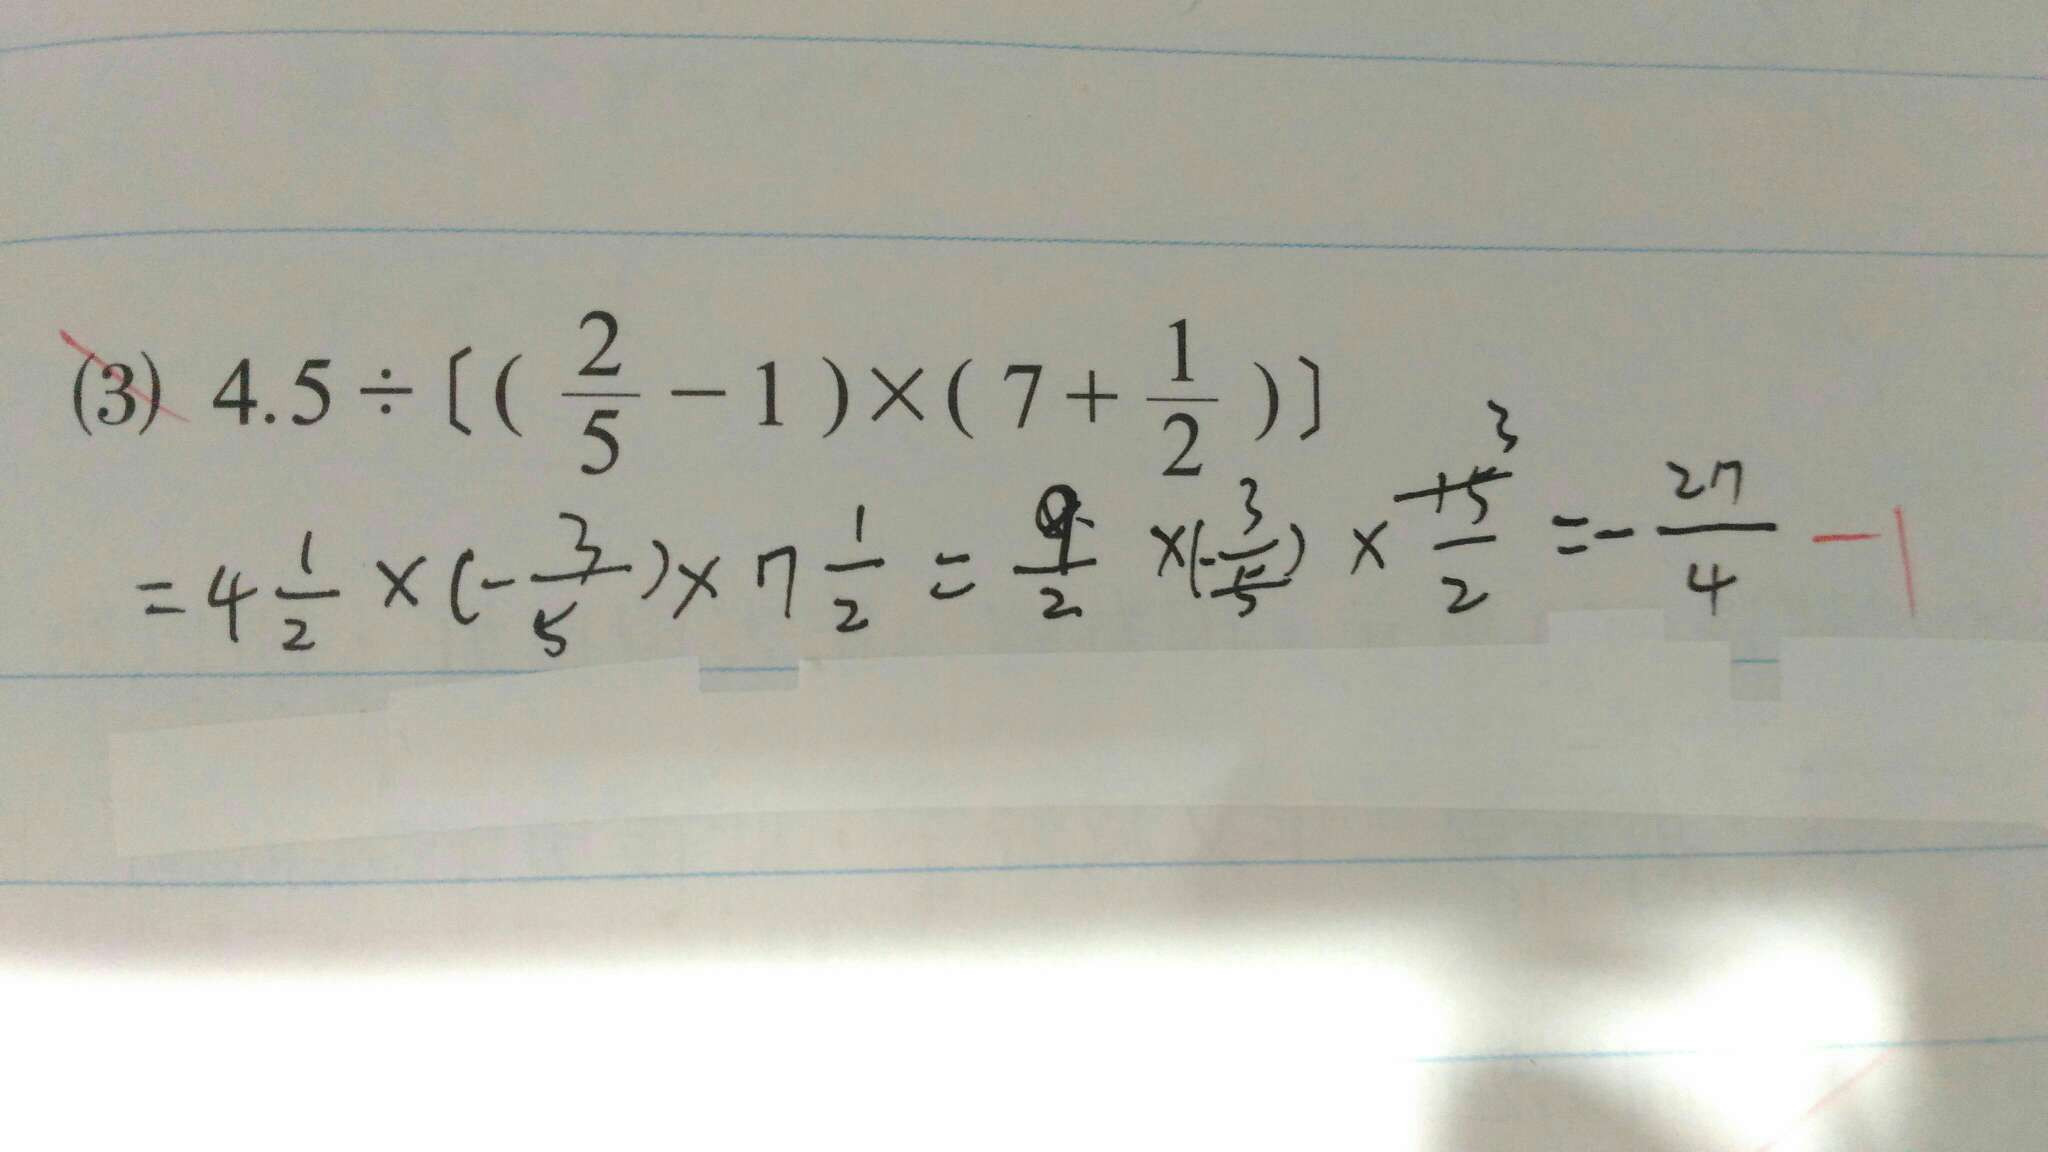 (3) 4.5÷〔(2/5−1)×(7+1/2)〕
=4 1/2×(-3/5)×7 1/2=9/2×(-3/5)×15/2 3=-27/4 -1